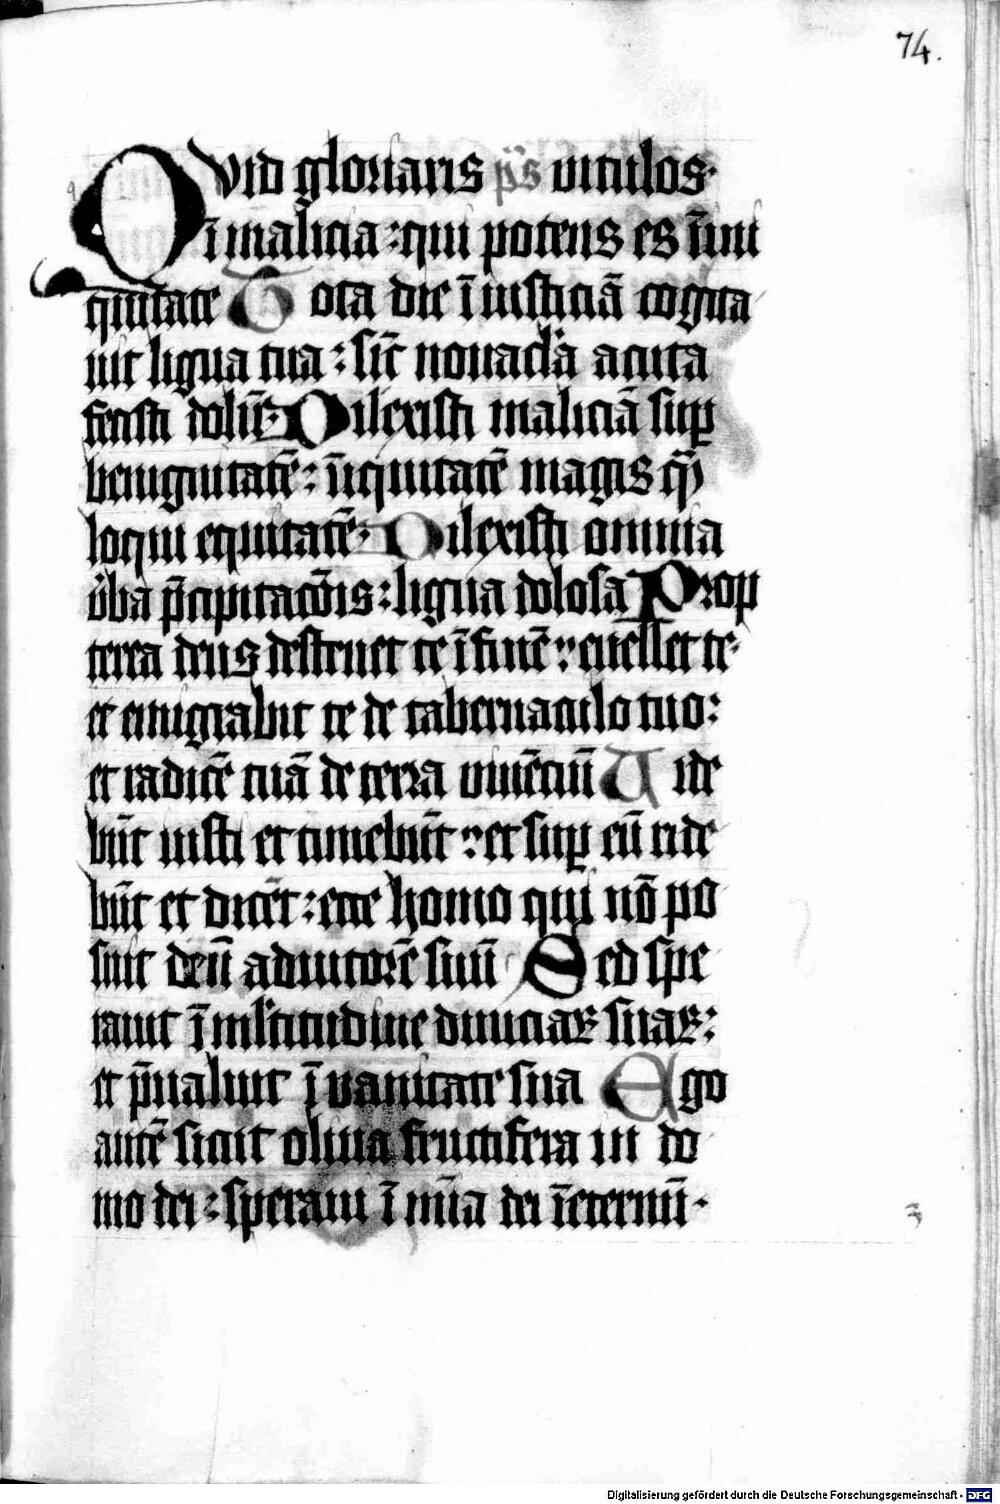 74.
Quid gloriaris p̄s uitulos·
ī malicia: qui potens es ī ini
quitate Tota die ī iusticiā cogita
uit ligua tua: sic̄ nouacl̄a acuta
fecisti dolū: Dilexisti maliciā sup
benignitatē: īiquitatē magis qᷓ
loqui equitatē: Dilexisti omnia
ūba p̄cipitacōis: ligua dolosa Prop
terea deus destruet te ī finē: euellet te·
et emigrabit te de tabernaculo tuo:
et radicē tuā de terra uiuēciū Uide
būt iusti et timebūt: et sup eū ride
būt et dicēt: ecce homo qui nō po
suit deū adiutorē suū Sed spe
rauit ī ml̄titudine diuiciaꝝ suaꝝ:
et p̄ualuit ī vanitate sua Ego
autē sicut oliua fructifera in do
mo dei: speraui ī mīa dei īeternū·
Digitalisierung gefördert durch die Deutsche Forschungsgemeinschaft - DFG